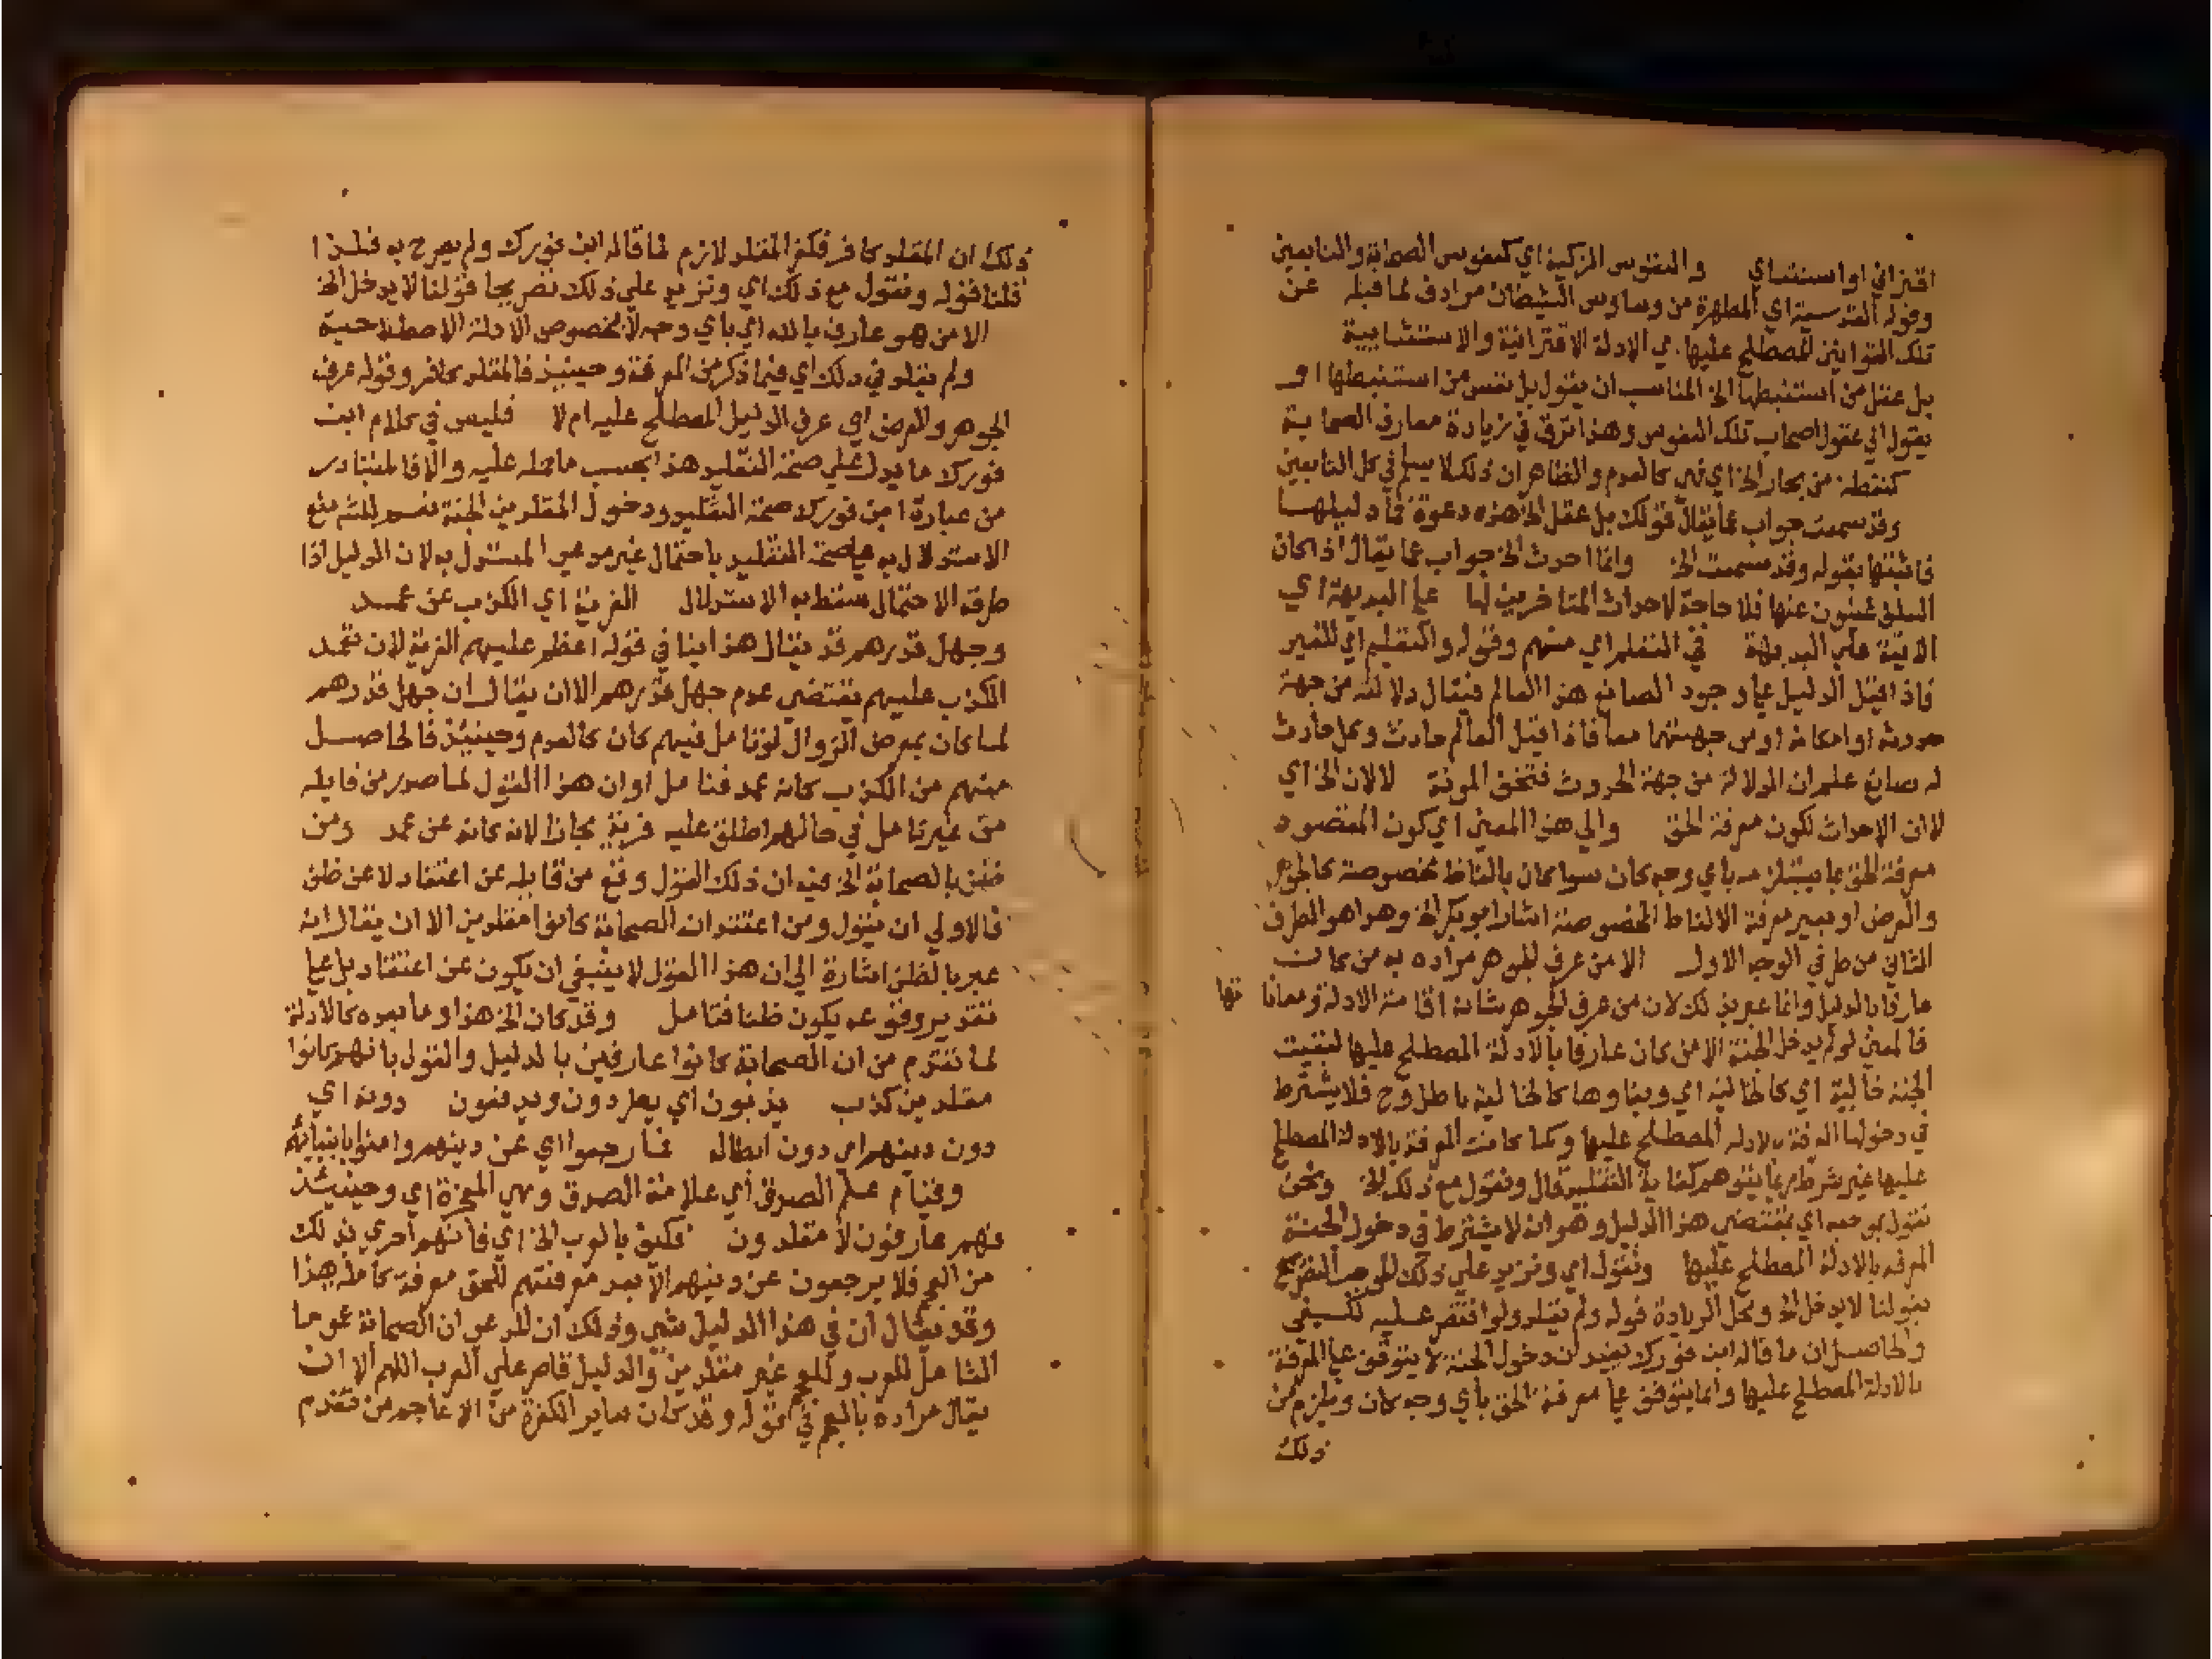 اقتراني او استثنائي والنفوس الزكية اي كنفوس الصحابة والتابعين
وقوله القدسية اي المطهرة من وساوس الشيطان مرادف لما قبله عن
تلك القوانين المصطلح عليها هي الادلة الاقترانية والاستثنايية
بل عقل من استنبطها الخ المناسب ان يقول بل نفس من استنبطها او
يقول الي عقول اصحاب تلك النفوس وهذا ترق في زيادة معارف الصحابة
كنقطة من بحار الخ اي فهي كالعدم والظاهر ان ذلك لا يسلم في كل التابعين
وقد سمعت جواب عما يقال قولك بل عقل الخ هذه دعوة فما دليلها
فاثبتها بقوله وقد سمعت الخ وانما احدث الخ جواب عما يقال اذا كان
السلف غنيون عنها فلا حاجة لاحداث المتاخرين لها علي البديهة اي
الاتية علي البديهة في التعلم اي منهم وقوله والتعليم اي للغير
فاذا قيل الدليل علي وجود الصانع هذا العالم فيقال دلالته من جهة
حدوثه او امكانه او من جهتهما معا فاذا قيل العالم حادث وكل حادث
له صانع علم ان الدلالة من جهة الحدوث فتخف المونة لا لان الخ اي
لا ان الاحداث لكون معرفة الحق والي هذا المعني اي كون المقصود
معرفة الحق بما يستلزمه باي وجه كان سوا كان بالفاظ مخصوصة كالجوهر
والعرض او بغير معرفة الالفاظ المخصوصة اشار ابو بكر الخ وهذا هو الطرف
الثاني من طرفي الوجه الاول الا من عرف الجوهر مراده به من كان
عارفا بالدليل وانما عبر بذلك لان من عرف الجوهر شانه اقامة الادلة ومعانا تها
فالمعني لو لم يدخل الجنة الا من كان عارفا بالادلة المصطلح عليها لبقيت
الجنة خالية اي كالخالية اي وبقاوها كالخالية باطل وح فلا يشترط
في دخولها المعرفة بالادلة المصطلح عليها ولما كانت المعرفة بالادلة المصطلح
عليها غير شرط ربما يتوهم كفاية التقليد قال ونقول مع ذلك الخ ونحن
نقول بموجبه اي بمقتضي هذا الدليل وهو انه لا يشترط في دخول الجنة
المعرفة بالادلة المصطلح عليها ونقول اي ونزيد علي ذلك الموجب التصريح
بقولنا لا يدخل الخ ومحل الزيادة قوله ولم يقلد ولو اقتصر عليه لكفي
والحاصل ان ما قاله ابن فورك يفيد ان دخول الجنة لا يتوقف علي المعرفة
بالادلة المصطلح عليها وانما يتوقف علي معرفة الحق باي وجه كان ويلزم من
ذلك
ذلك ان المقلد كافر فكفر المقلد لازم لما قاله ابن فورك ولم يصرح به فلذا
قلنا قوله ونقول مع ذلك اي ونزيد علي ذلك تصريحا قولنا لا يدخل الخ
الا من هو عارف بالله اي باي وجه لا بخصوص الادلة الاصطلاحية
ولم يقلد في ذلك اي فيما ذكر من المعرفة وحينيذ فالمقلد كافر وقوله عرف
الجوهر والعرض اي عرف الدليل المصطلح عليه ام لا فليس في كلام ابن
فورك ما يدل علي صحة التقليد هذا بحسب ما حمله عليه والا فالمتبادر
من عبارة ابن فورك صحة التقليد ودخول المقلدين الجنة نعم للشم منع
الاستدلال به علي صحة التقليد باحتمال غير مدعي المستدل به لان الدليل اذا
طرقه الاحتمال سقط به الاستدلال الفرية اي الكذب عن عمد
وجهل قدرهم قد يقال هذا ينافي قوله اعظم عليهم الفرية لان تعمد
الكذب عليهم يقتضي عدم جهل قدرهم الا ان يقال ان جهل قدرهم
لما كان بمعرض الزوال لو تامل فيهم كان كالعدم وحينيذ فالحاصل
منهم من الكذب كانه عمد فتامل او ان هذا القول لما صدر من قايله
من غير تامل في حالهم اطلق عليه فرية مجازا لانه كانه عن عمد ومن
ظن بالصحابة الخ فيه ان ذلك القول وقع من قايله عن اعتقاد لا عن ظن
فالاولي ان يقول ومن اعتقد ان الصحابة كانوا مقلدين الا ان يقال انه
عبر بالظن اشارة الي ان هذا القول لا ينبغي ان يكون عن اعتقاد بل علي
تقدير وقوعه يكون ظنا فتامل وقد كان الخ هذا وما بعده كالادلة
لما تقدم من ان الصحابة كانوا عارفين بالدليل والقول بانهم كانوا
مقلدين كذب يذبون اي يطردون ويدفعون دونه اي
دون دينهم اي دون ابطاله فما رجعوا اي عن دينهم وامنوا بانبيائهم
وقيام علم الصدق اي علامة الصدق وهي المعجزة اي وحينيذ
فهم عارفون لا مقلدون فكيف بالعرب الخ اي فانهم احري بذلك
من العجم فلا يرجعون عن دينهم الا بعد معرفتهم للحق معرفة كاملة هذا
وقد يقال ان في هذا الدليل شي وذلك ان المدعي ان الصحابة عموما
الشامل للعرب وللعجم غير مقلدين والدليل قاصر علي العرب اللهم الا ان
يقال مراده بالعجم في قوله وقد كان ساير الكفرة من الاعاجم من تقدم